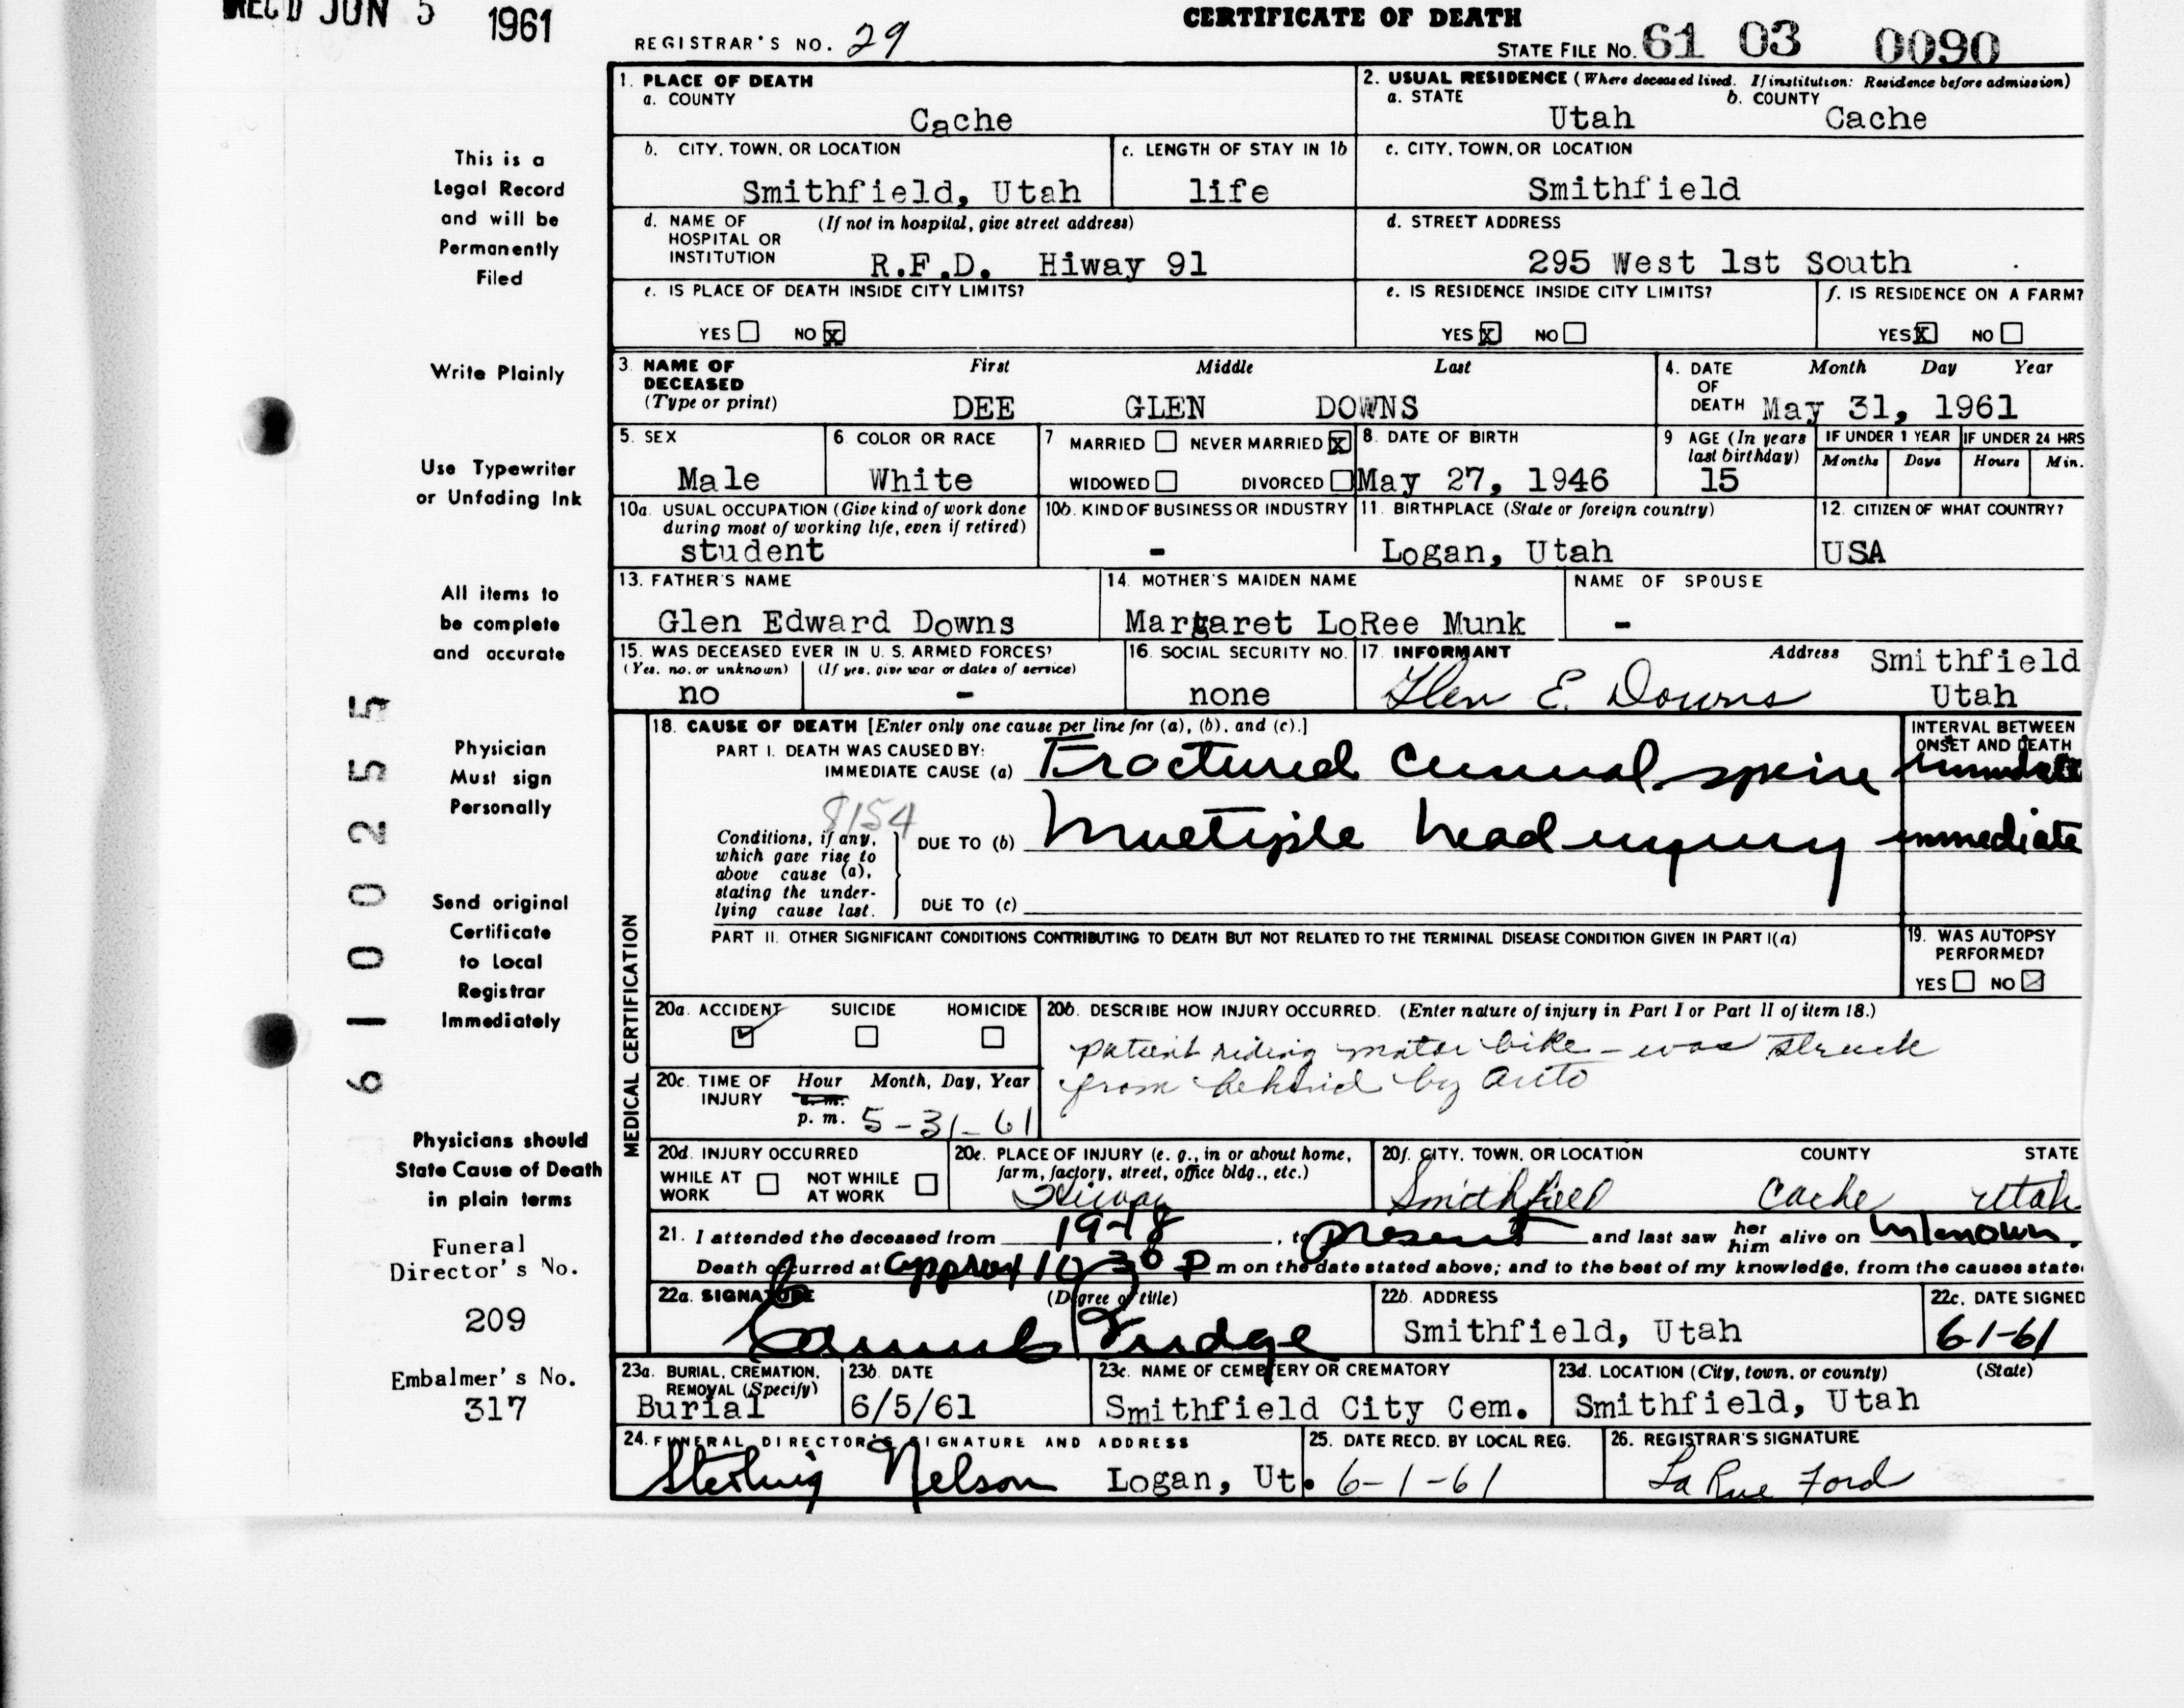 REC'D JUN 5 1961
CERTIFICATE OF DEATH
REGISTRAR'S NO. 29
STATE FILE NO. 61 03 0090
This is a
Legal Record
and will be
Permanently
Filed
Write Plainly
Use Typewriter
or Unfading Ink
All items to
be complete
and accurate
Physician
Must sign
Personally
Send original
Certificate
to Local
Registrar
Immediately
Physicians should
State Cause of Death
in plain terms
Funeral
Director's No.
209
Embalmer's No.
317
61 0 0 2 5 5
1. PLACE OF DEATH
a. COUNTY
Cache
2. USUAL RESIDENCE (Where deceased lived. If institution: Residence before admission)
a. STATE
Utah
b. COUNTY
Cache
b. CITY, TOWN, OR LOCATION
Smithfield, Utah
c. LENGTH OF STAY IN 1b
life
c. CITY, TOWN, OR LOCATION
Smithfield
d. NAME OF (If not in hospital, give street address)
HOSPITAL OR
INSTITUTION
R.F.D. Hiway 91
d. STREET ADDRESS
295 West 1st South
e. IS PLACE OF DEATH INSIDE CITY LIMITS?
YES NO X
e. IS RESIDENCE INSIDE CITY LIMITS?
YES X NO
f. IS RESIDENCE ON A FARM?
YES X NO
3. NAME OF
DECEASED
(Type or print)
First Middle Last
DEE GLEN DOWNS
4. DATE Month Day Year
OF
DEATH May 31, 1961
5. SEX
Male
6 COLOR OR RACE
White
7 MARRIED NEVER MARRIED X
WIDOWED DIVORCED
8. DATE OF BIRTH
May 27, 1946
9 AGE (In years
last birthday)
15
IF UNDER 1 YEAR
Months Days
IF UNDER 24 HRS
Hours Min.
10a. USUAL OCCUPATION (Give kind of work done
during most of working life, even if retired)
student
10b. KIND OF BUSINESS OR INDUSTRY
-
11. BIRTHPLACE (State or foreign country)
Logan, Utah
12. CITIZEN OF WHAT COUNTRY?
USA
13. FATHER'S NAME
Glen Edward Downs
14. MOTHER'S MAIDEN NAME
Margaret LoRee Munk
NAME OF SPOUSE
-
15. WAS DECEASED EVER IN U. S. ARMED FORCES?
(Yes, no, or unknown) (If yes, give war or dates of service)
no -
16. SOCIAL SECURITY NO.
none
17. INFORMANT Address
Glen E. Downs
Smithfield
Utah
MEDICAL CERTIFICATION
18. CAUSE OF DEATH [Enter only one cause per line for (a), (b), and (c).]
PART I. DEATH WAS CAUSED BY:
IMMEDIATE CAUSE (a) Fractured cervical spine
INTERVAL BETWEEN
ONSET AND DEATH
immediate
8154
Conditions, if any,
which gave rise to
above cause (a),
stating the under-
lying cause last.
DUE TO (b) Multiple head injury immediate
DUE TO (c)
PART II. OTHER SIGNIFICANT CONDITIONS CONTRIBUTING TO DEATH BUT NOT RELATED TO THE TERMINAL DISEASE CONDITION GIVEN IN PART I(a)
19. WAS AUTOPSY
PERFORMED?
YES NO
20a. ACCIDENT SUICIDE HOMICIDE
20b. DESCRIBE HOW INJURY OCCURRED. (Enter nature of injury in Part I or Part II of item 18.)
patient riding motor bike - was struck
from behind by auto
20c. TIME OF Hour Month, Day, Year
INJURY a. m.
p. m. 5-31-61
20d. INJURY OCCURRED
WHILE AT NOT WHILE
WORK AT WORK
20e. PLACE OF INJURY (e. g., in or about home,
farm, factory, street, office bldg., etc.)
Hiway
20f. CITY, TOWN, OR LOCATION COUNTY STATE
Smithfield Cache Utah
21. I attended the deceased from 1948, to present and last saw her him alive on unknown.
Death occurred at approx 10 30 P m on the date stated above; and to the best of my knowledge, from the causes state
22a. SIGNATURE (Degree or title)
Budge
22b. ADDRESS
Smithfield, Utah
22c. DATE SIGNED
6-1-61
23a. BURIAL, CREMATION,
REMOVAL (Specify)
Burial
23b. DATE
6/5/61
23c. NAME OF CEMETERY OR CREMATORY
Smithfield City Cem.
23d. LOCATION (City, town, or county) (State)
Smithfield, Utah
24. FUNERAL DIRECTOR'S SIGNATURE AND ADDRESS
Sterling Nelson Logan, Ut.
25. DATE RECD. BY LOCAL REG.
6-1-61
26. REGISTRAR'S SIGNATURE
La Rue Ford